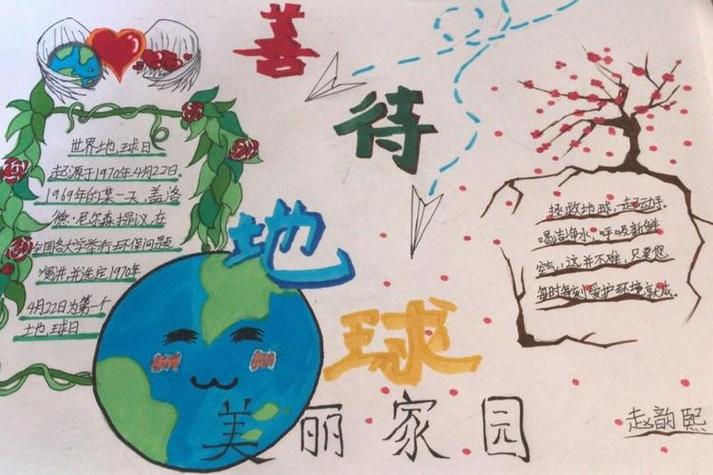 善待地球
世界地球日
起源于1970年4月22日.
1969年的某一天,盖洛
德·尼尔森提议,在
全国各大学举行环保问题
演讲,并选定1970年
4月22日为第一个
地球日
拯救地球,
喝洁净水,呼吸新鲜
空气,这并不难,只要您
每时每刻爱护环境就成.
美丽家园
赵韵熙